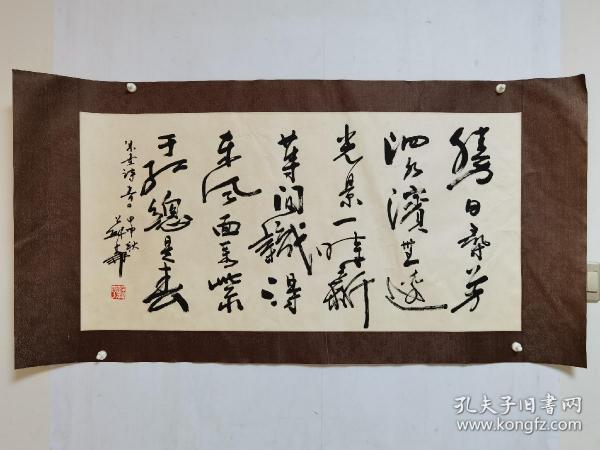 勝日尋芳
泗水濱無邊
光景一時新
等閒識得
東風面萬紫
千紅總是春
朱熹詩一首
甲申秋
孔夫子旧书网
www.kongfz.com